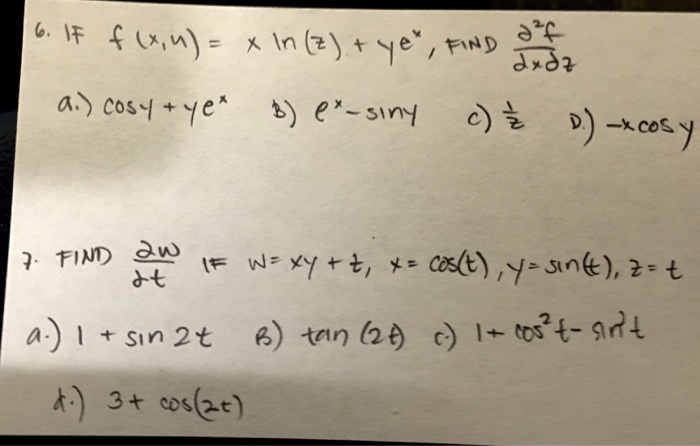 6. IF f(x,y) = x ln(z) + ye^x, FIND ∂²f/∂x∂z
a.) cosy + ye^x B) e^x - siny c) 1/z D.) -x cos y
7. FIND ∂w/∂t IF W = xy + z, x = cos(t), y = sin(t), z = t
a.) 1 + sin 2t B) tan (2t) c.) 1 + cos²t - sin²t
d.) 3 + cos(2t)